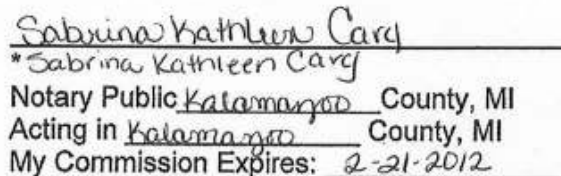 Sabrina Kathleen Cary
*Sabrina Kathleen Cary
Notary Public Kalamazoo County, MI
Acting in Kalamazoo County, MI
My Commission Expires: 2-21-2012